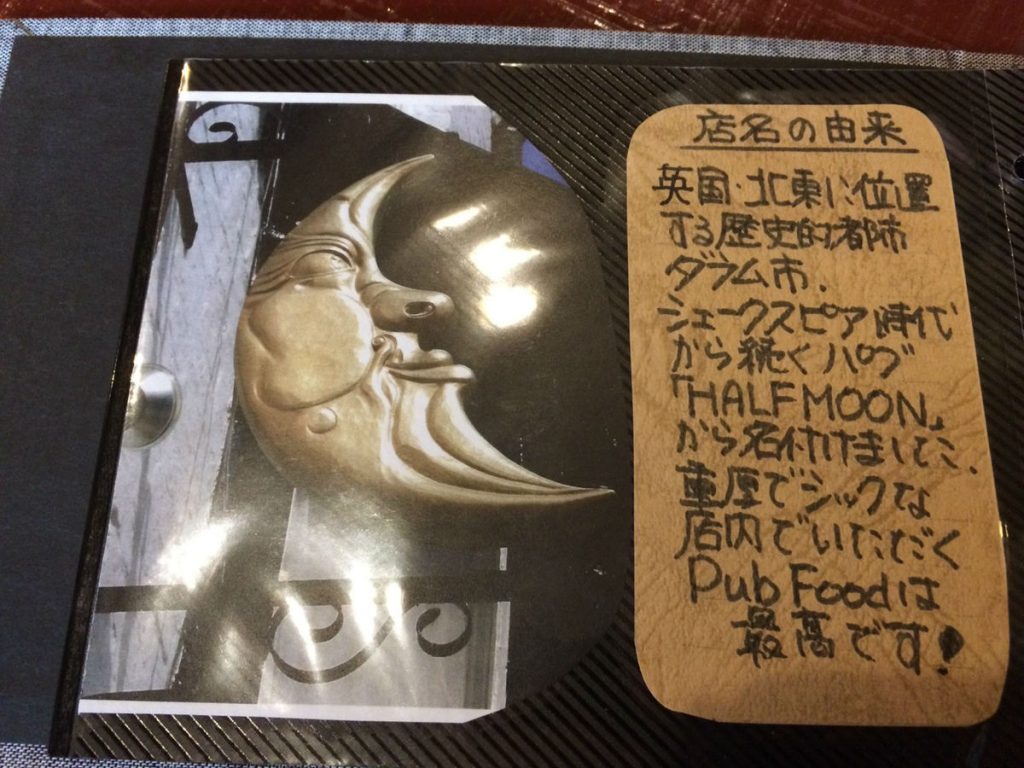 店名の由来
英国・北東に位置
する歴史的都市
ダラム市.
シェークスピア時代
から続くパブ
「HALF MOON」
から名付けました、
重厚でシックな
店内でいただく
Pub Foodは
最高です!